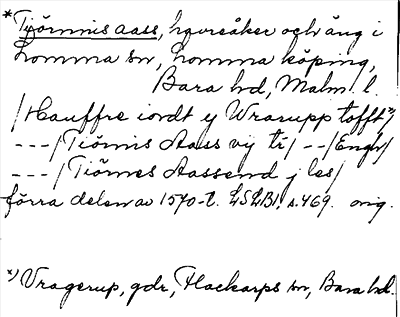 *Tiörnnis aass, havreåker och äng i
Lomma sn, Lomma köping,
Bara hd, Malm. l.
/Hauffre iordt y Wrarupp tofft*)/
---/Tiörnis Aass vy ti/--/Engh/
---/Tiörnes Aassend j les/
förra delen av 1570-t. LSLB1, s. 469. orig.
*) Vragerup, gdr, Flackarps sn, Bara hd.